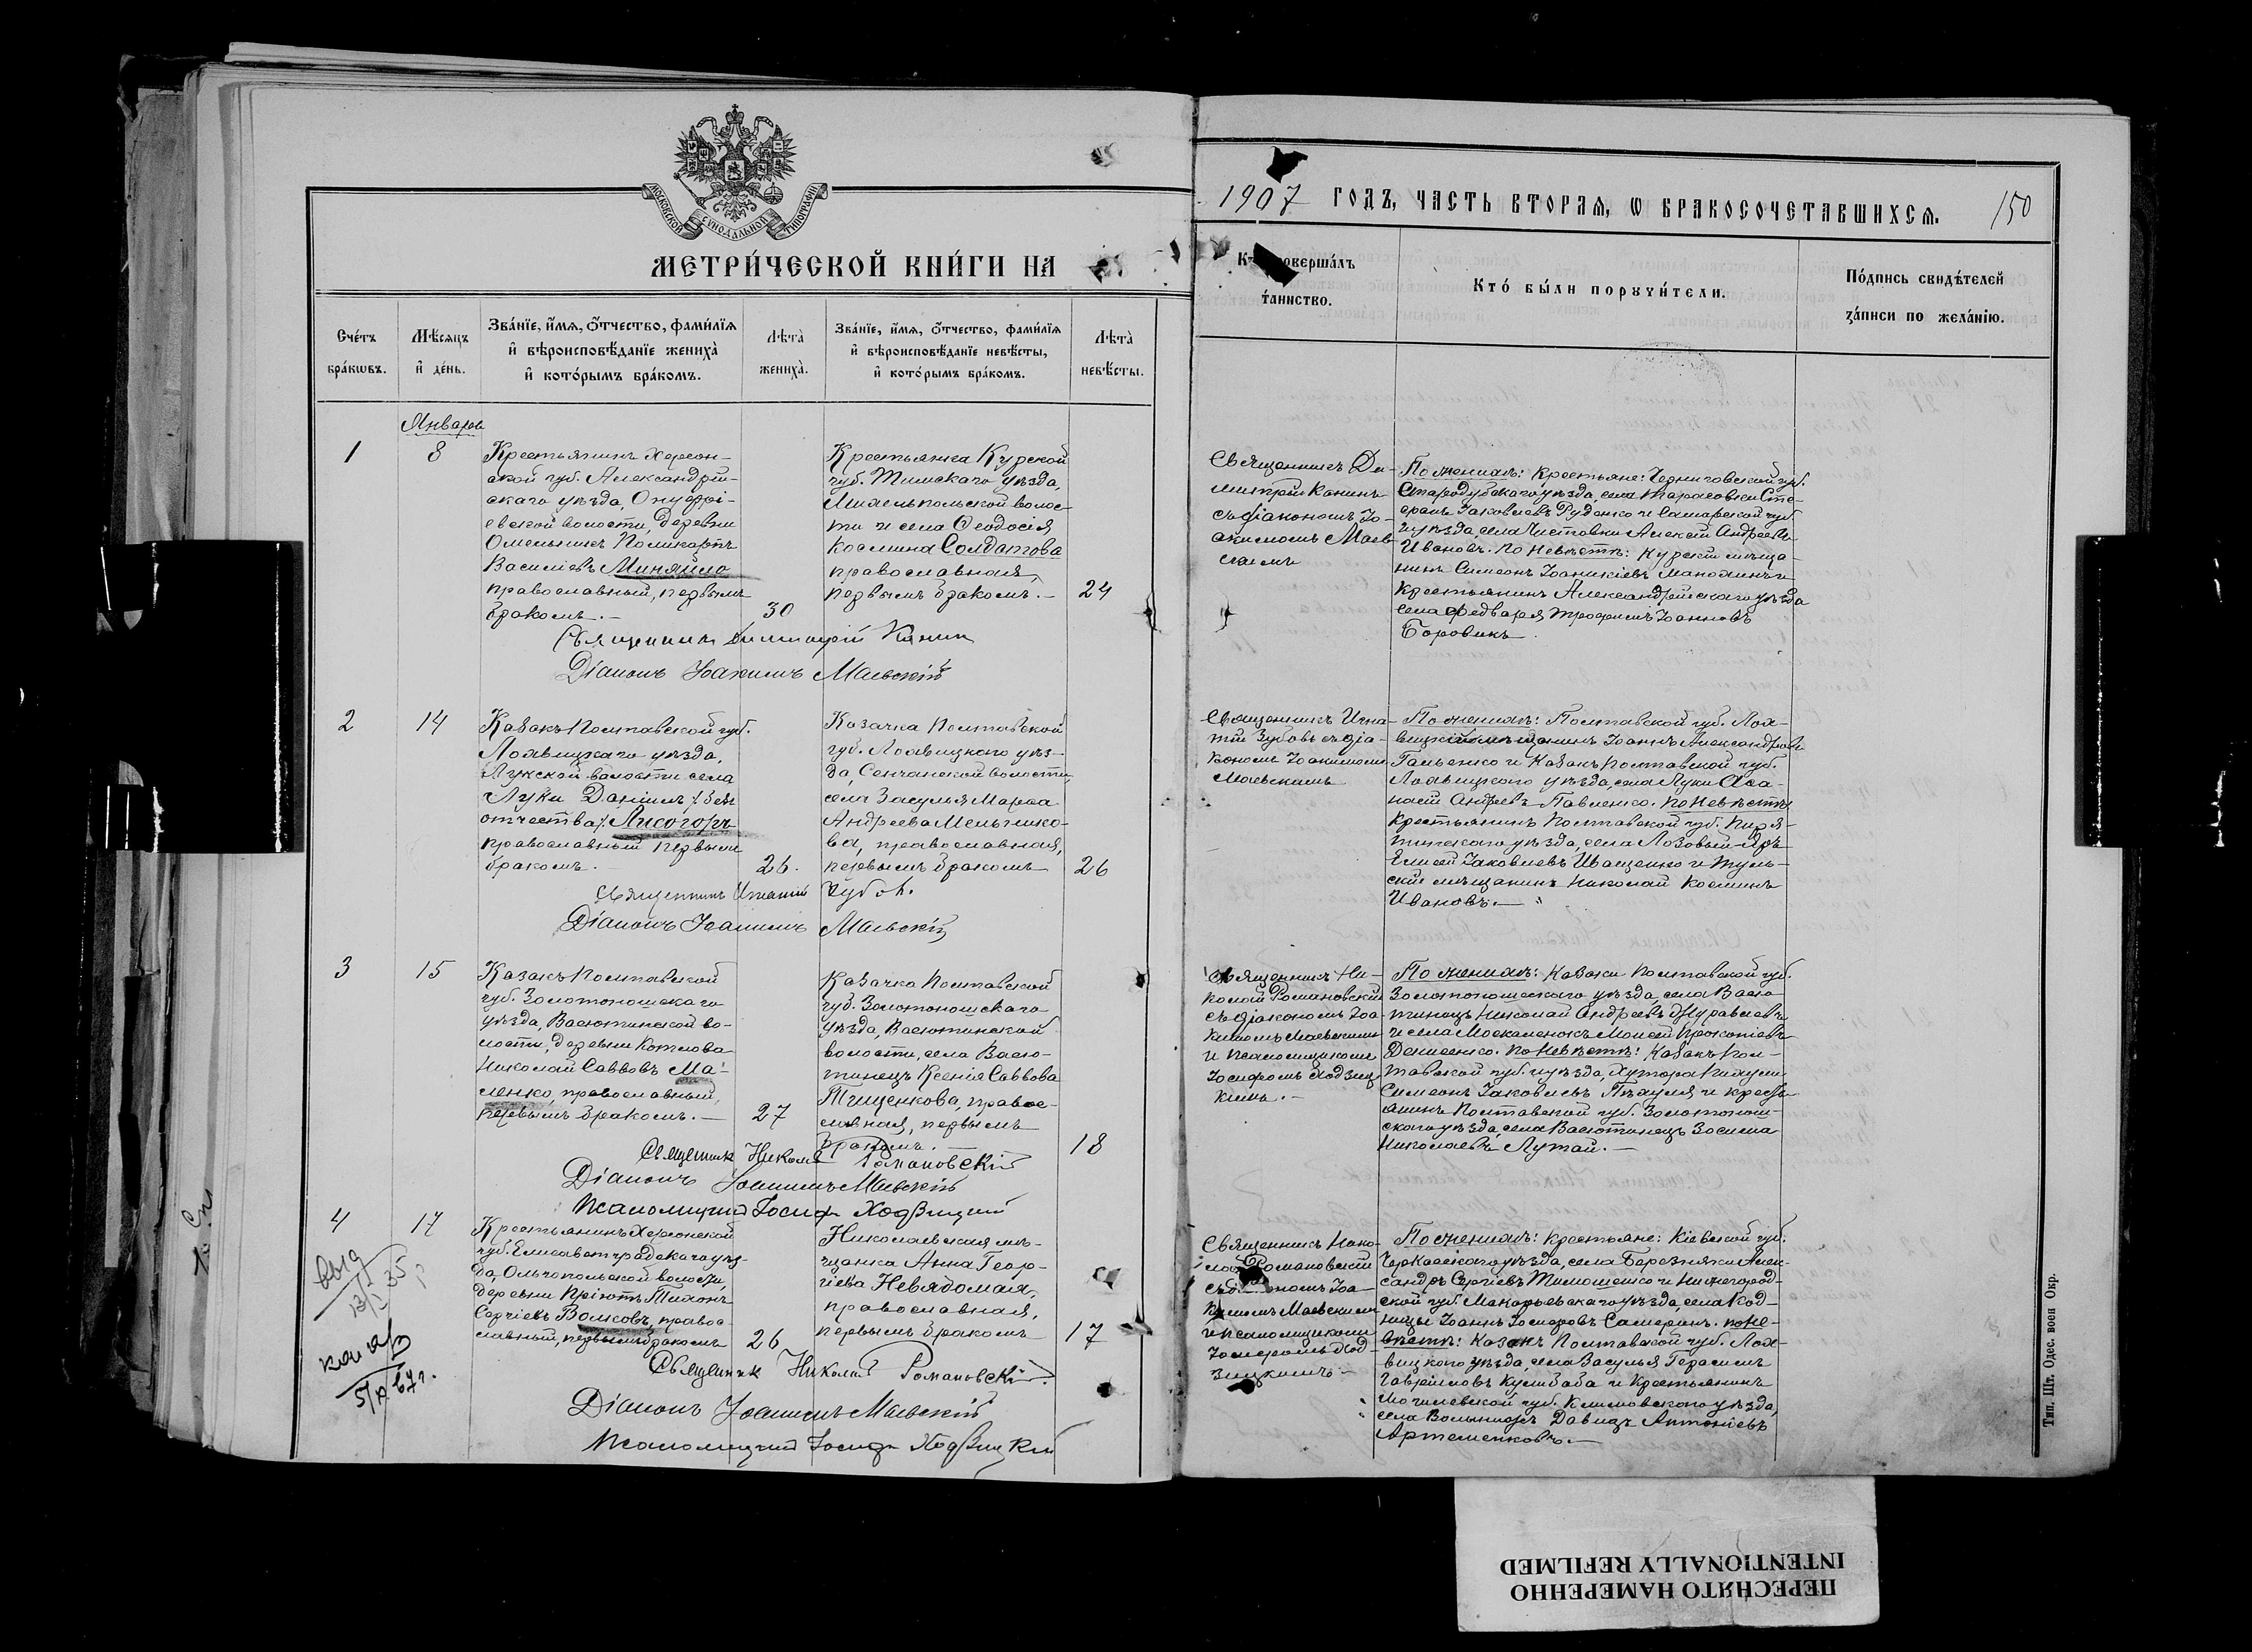 МОСКОВСКОЙ СУНОДАЛЬНОЙ ТИПОГРАФІИ
МЕТРИ́ЧЕСКОЙ КНИ́ГИ НА
1907 ГОДЪ, ЧАСТЬ ВТОРАѦ, Ѡ БРАКОСОЧЕТАВШИХСѦ. 150
Сче́тъ
бра́кѡвъ.
Мѣ́сяцъ
и҆ де́нь.
Зва́нїе, и҆́мѧ, ѻ҆́тчество, фами́лїѧ
и҆ вѣроисповѣ́данїе жениха̀
и҆ кото́рымъ бра́комъ.
Лѣта̀
жениха̀.
Зва́нїе, и҆́мѧ, ѻ҆́тчество, фами́лїѧ
и҆ вѣроисповѣ́данїе невѣ́сты,
и҆ кото́рымъ бра́комъ.
Лѣта̀
невѣ́сты.
соверша́лъ
та́инство.
Кто́ бы́ли порꙋчи́тели.
По́дпись свидѣ́телей
за́писи по жела́нїю.
Январь
1
8
Крестьянинъ Херсон-
ской губ. Александрій-
скаго уѣзда, Онуфрі-
евской волости, деревни
Омельникъ Поликарпъ
Василіевъ Миняйло
православный, первымъ
бракомъ.—
30
Крестьянка Курской
губ. Тимскаго уѣзда,
волос-
ти и села Ѳеодосія
Космина Солдатова
православная,
первымъ бракомъ.—
24
Священникъ Ди-
митрій Канинъ
съ діакономъ Іо-
акимомъ Маев-
скимъ
По женихѣ: Крестьяне: Черниговской губ.
Стародубскаго уѣзда, села Тарасовки Сте-
фанъ Іаковлевъ Руденко и Самарской губ.
и уѣзда, села Чистовки Алексѣй Андреевъ
Ивановъ. По невѣстѣ: Курскій мѣща-
нинъ Симеонъ Іоаникіевъ и
крестьянинъ Александрійскаго уѣзда
села Федваря Трофимъ Іоанновъ
Боровикъ.
Священникъ Димитрій Канин
Діаконъ Іоакимъ Маевскій
2
14
Казакъ Полтавской губ.
Лохвицкаго уѣзда,
Лукской волости села
Луки Даніилъ /безъ
отчества/ Лисогоръ
православный первымъ
бракомъ.
26.
Козачка Полтавской
губ. Лохвицкаго уѣз-
да, Сенчанской волости,
села Засулья Марѳа
Андреева Мельнико-
ва, православная,
первымъ бракомъ
26
Священникъ Игна-
тій Зубовъ съ діа-
кономъ Іоакимомъ
Маевскимъ
По женихѣ: Полтавской губ. Лох-
вицкій мѣщанинъ Іоаннъ Александровъ
и Казакъ Полтавской губ.
Лохвицкаго уѣзда, села Луки Аѳа-
насій Андреевъ Павленко. По невѣстѣ
Крестьянинъ Полтавской губ. Пиря-
тинскаго уѣзда, села Лозовый-Яръ
Елисей Іаковлевъ Иващенко и Туль-
скій мѣщанинъ Николай Косминъ
Ивановъ.—
Священникъ Игнатій Зубов.
Діаконъ Іоакимъ Маевскій
3
15
Казакъ Полтавской
губ. Золотоношскаго
уѣзда, Васютинской во-
лости, деревни Котлова
Николай Саввовъ Ма-
ленко, православный,
первымъ бракомъ.—
27
Казачка Полтавской
губ. Золотоношскаго
уѣзда, Васютинской
волости, села Васю-
тинецъ Ксенія Саввова
Тищенкова, право-
славная, первымъ
бракомъ.—
18
Священникъ Ни-
колай Романовскій
съ діакономъ Іоа-
кимомъ Маевскимъ
и псаломщикомъ
Іосифомъ Ходзиц-
кимъ.—
По женихѣ: Казаки Полтавской губ.
Золотоношскаго уѣзда, села Васю-
тинецъ Николай Андреевъ Журавлевъ
и села Москаленокъ Моисей Прокопіевъ
Денисенко. По невѣстѣ: Казакъ Пол-
тавской губ. и уѣзда, хутора
Симеонъ Іаковлевъ и крестья-
янинъ Полтавской губ. Золотонош-
скаго уѣзда, села Васютинецъ Зосима
Николаевъ Лутай.—
Священник Николай Романовскій
Діаконъ Іоакимъ Маевскій
Псаломщикъ Іосифъ Ходзицкій
4
17
Крестьянинъ Херсонской
губ. Елисаветградскаго уѣз-
да, Ольгопольской волости,
деревни Пріютъ Тихонъ
Сергіевъ Волковъ, правос-
лавный, первымъ бракомъ
26
Николаевская мѣ-
щанка Анна Геор-
гіева Невядомая,
православная,
первымъ бракомъ
17
Священникъ Нико-
лай Романовскій
Іоа-
кимомъ Маевскимъ
и псаломщикомъ
Іосифомъ Ход-
зицкимъ.—
По женихѣ: Крестьяне: Кіевской губ.
Черкасскаго уѣзда, села Березняки Алек-
сандръ Сергіевъ Тимошенко и Нижегород-
ской губ. Макарьевскаго уѣзда, села
Іоаннъ Іосифовъ По не-
вѣстѣ: Казакъ Полтавской губ. Лох-
вицкаго уѣзда, села Засулья Герасимъ
Гавріиловъ Кулибаба и Крестьянинъ
Могилевской губ. Климовскаго уѣзда,
села Давидъ Антоніевъ
Артеменковъ.—
Священник Николай Романовскій.
Діаконъ Іоакимъ Маевскій
Псаломщикъ Іосифъ Ходзицкій
Тип. Шт. Одес. воен Окр.
ПЕРЕСНЯТО НАМЕРЕННО
INTENTIONALLY REFILMED